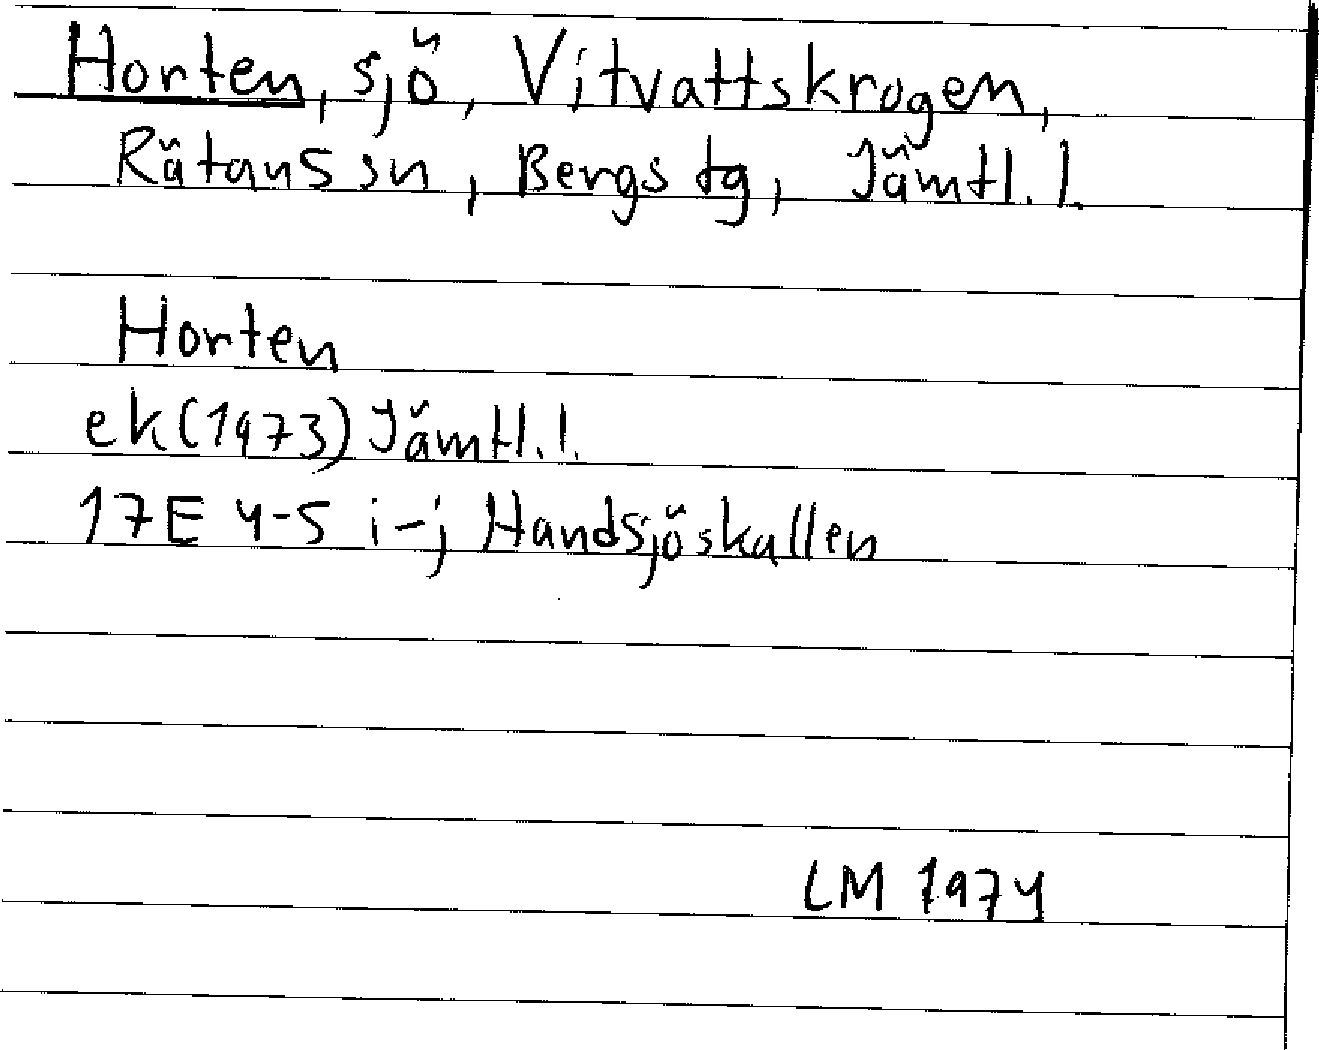 Horten, sjö, Vitvattskrogen,
Rätans sn, Bergs tg, Jämtl. l.
Horten
ek(1973) Jämtl. l.
17E 4-5 i-j Handsjöskallen
LM 1974